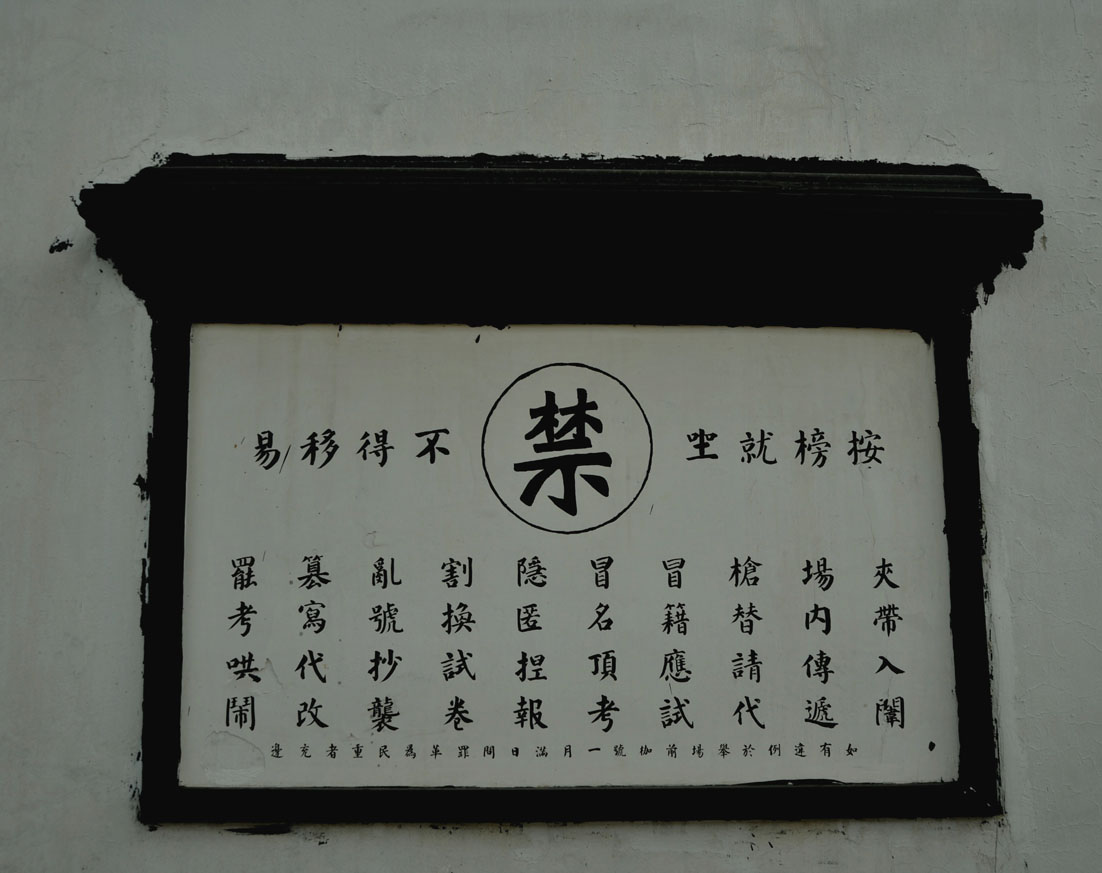 禁
按榜就坐
不得移易
夾帶入闈
場內傳遞
槍替請代
冒籍應試
冒名頂考
隱匿捏報
割換試卷
亂號抄襲
篡寫代改
罷考哄鬧
如有違例於舉場前枷號一月滿日問罪革為民重者充邊